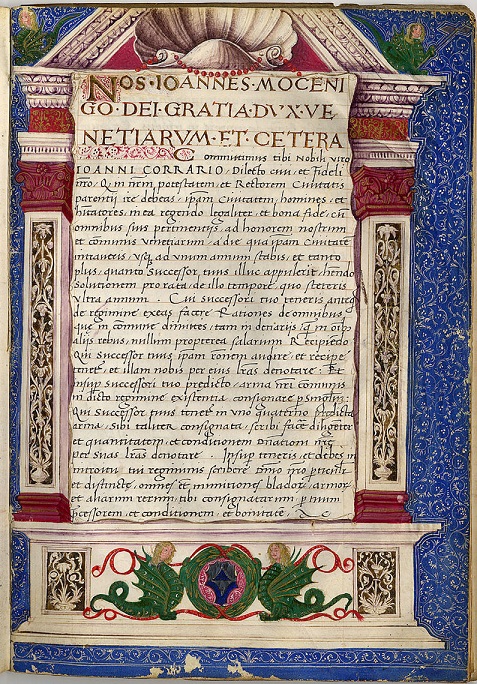 NOS·IOANNES·MOCENI
GO·DEI·GRATIA·DVX·VE
NETIARVM·ET·CETERA
Committimus tibi Nobili viro
IOANNI CORRARIO, Dilecto ciui, et fideli
nro, Q in nem potestatem, et Rectorem Ciuitatis
parentii ire debeas, ipam Ciuitatem, homines, et
hitatores, in ea regendo legaliter, et bona fide, cu
omnibus suis pertinentijs, ad honorem nostrum
et comunis venetiarum, a die qua ipam Ciuitate
intraueris, vsq ad vnum annum stabis, et tanto
plus, quanto Successor tuus illuc appulerit, hendo
solutionem pro rata, de illo tempore, quo steteris
vltra annum. Cui successori tuo teneris anteq
de regimine exeas facere Rationes de omnibus
que in comune dimittes, tam in denarijs, q in oibus
alijs rebus, nullum propterea salarium Recipiendo
Qui Successor tuus ipam ronem audire, et recipe
tenet et illam nobis per eius lras denotare: Et
insup successori tuo predicto, arma nri comunis
in dicto regimine existentia, consignare
Qui Successor tuus tenet in vno quaterno predicta
arma, sibi taliter consignata, scribi facere diligenter
et quantitatem, et conditionem
per suas lras denotare. Insup teneris, et debes in
introitu tui regiminis scribere
et distincte, omnes et munitiones bladorum, armor
et aliarum rerum, tibi consignatarum, p tuum
pcessorem, et conditionem, et bonitatem,